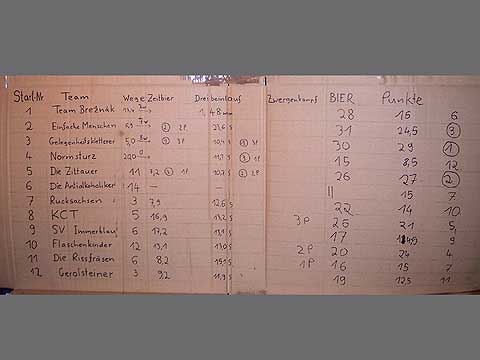 Start-Nr. Team Wege Zeitbier Dreibeinlauf Zwergenkampf BIER Punkte
1 Team Brežnák 1,48 28 15 6
2 Einfache Menschen 21,6 s 31 24,5 3
3 Gelegenheitskletterer 5,0 10,4 s 30 29 1
4 Normsturz 11,9 s 15 8,5 12
5 Die Zittauer 11 7,2 10,7 s 26 27 2
6 Die Antialkoholiker 14 — — 11 15 7
7 Rucksachsen 3 7,9 12,6 s 22 14 10
8 KCT 5 16,9 13,2 s 3P 26 21 5
9 SV Immerblau 6 17,2 13,9 s 17 9
10 Flaschenkinder 12 13,1 13,0 s 2P 20 24 4
11 Die Rissfräsen 6 8,2 15,1 s 1P 16 15 7
12 Gerolsteiner 3 9,2 11,9 s 19 12,5 11